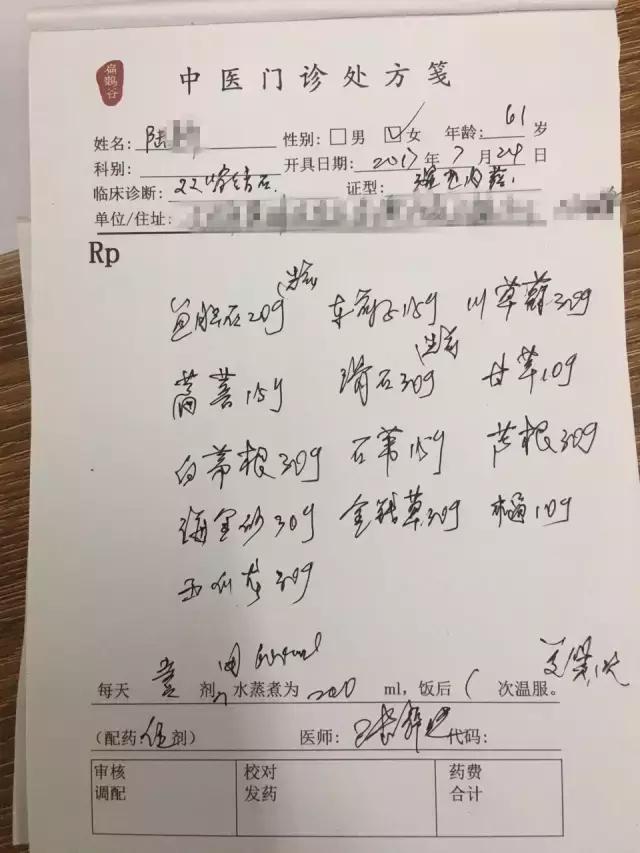 扁鹊谷
中医门诊处方笺
姓名: 陆 性别: □男 ☑女 年龄: 61 岁
科别: 开具日期: 2017 年 7 月 24 日
临床诊断: 双肾结石 证型: 湿热内蕴
单位/住址:
Rp
鱼脑石20g 先煎 车前子15g 川萆薢30g
萹蓄15g 滑石30g 先煎 甘草10g
白茅根30g 石苇15g 芦根30g
海金砂30g 金钱草30g 10g
玉米须30g
每天 壹 剂, 水蒸煮为 200 ml, 饭后 次温服。
(配药 伍 剂) 医师: 代码:
审核 校对 药费
调配 发药 合计